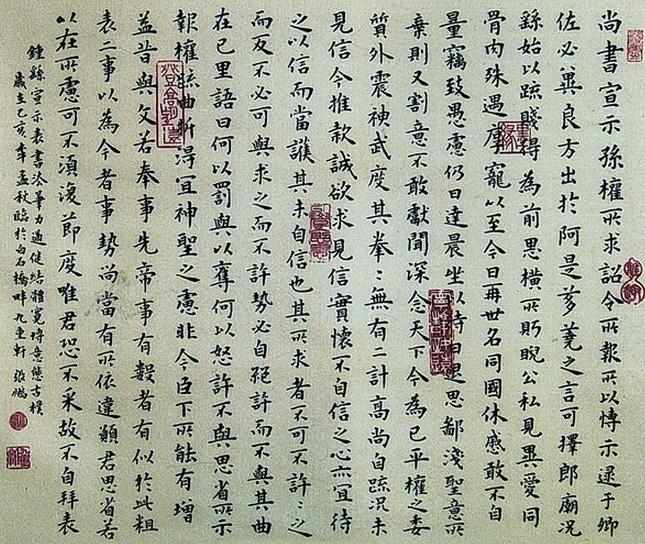 尚書宣示孫權所求詔令所報所以博示逮于卿
佐必冀良方出於阿是芻蕘之言可擇郎廟況
繇始以疏賤得為前恩橫所盼睨公私見異愛同
骨肉殊遇厚寵以至今日再世名同國休慼敢不自
量竊致愚慮仍日達晨坐以待旦退思鄙淺聖意所
棄則又割意不敢獻聞深念天下今為已平權之委
質外震神武度其拳〻無有二計高尚自疏況未
見信今推款誠欲求見信實懷不自信之心亦宜待
之以信而當護其未自信也其所求者不可不許〻之
而反不必可與求之而不許勢必自絕許而不與其曲
在己里語曰何以罰與以奪何以怒許不與思省所示
報權疏曲折得宜神聖之慮非今臣下所能有增
益昔與文若奉事先帝事有數者有似於此粗
表二事以為今者事勢尚當有所依違願君思省若
以在所慮可不須復節度唯君恐不采故不自拜表
鍾繇宣示表書法筆力遒健結體寬博意態古樸
歲在己亥年孟秋臨於白石橋畔九重軒 張